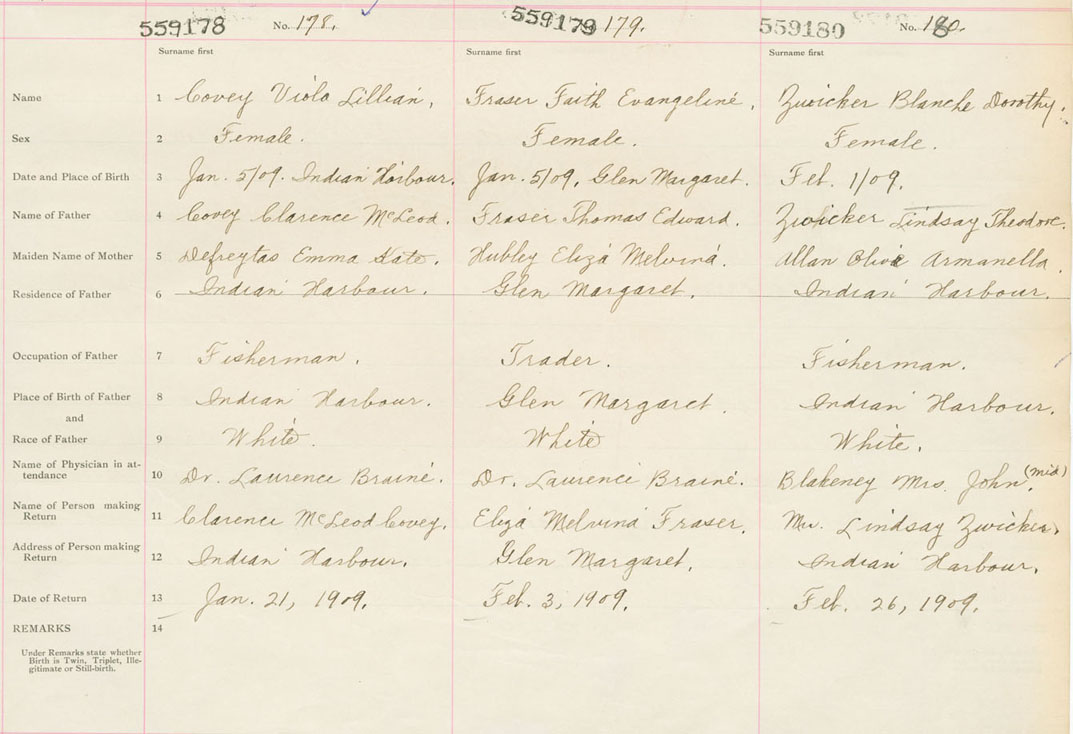 559178 No. 178. 559179 179. 559180 No. 180.
Surname first Surname first Surname first
Name 1 Covey Viola Lillian, Fraser Faith Evangeline, Zwicker Blanche Dorothy.
Sex 2 Female. Female. Female.
Date and Place of Birth 3 Jan. 5/09. Indian Harbour. Jan. 5/09, Glen Margaret. Feb. 1/09.
Name of Father 4 Covey Clarence McLeod. Fraser Thomas Edward. Zwicker Lindsay Theodore.
Maiden Name of Mother 5 Defreytas Emma Kate. Hubley Eliza Melvina. Allan Olive Armanella.
Residence of Father 6 Indian Harbour. Glen Margaret. Indian Harbour.
Occupation of Father 7 Fisherman. Trader. Fisherman.
Place of Birth of Father 8 Indian Harbour. Glen Margaret. Indian Harbour.
and
Race of Father 9 White. White White.
Name of Physician in at-
tendance 10 Dr. Laurence Braine. Dr. Laurence Braine. Blakeney Mrs. John. (mid)
Name of Person making
Return 11 Clarence McLeod Covey. Eliza Melvina Fraser. Mr. Lindsay Zwicker.
Address of Person making
Return 12 Indian Harbour. Glen Margaret. Indian Harbour.
Date of Return 13 Jan. 21, 1909. Feb. 3, 1909. Feb. 26, 1909.
REMARKS 14
Under Remarks state whether
Birth is Twin, Triplet, Ille-
gitimate or Still-birth.